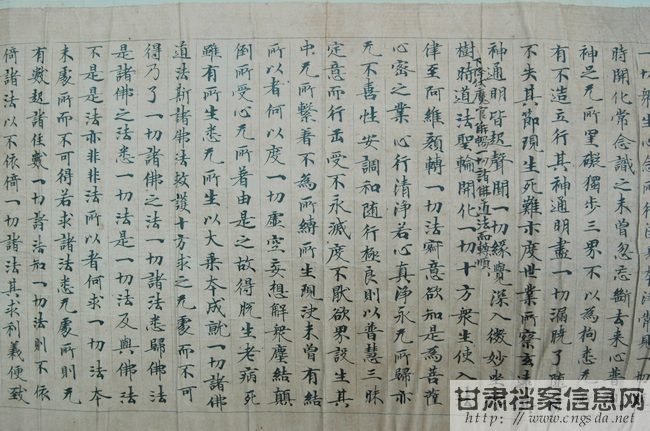 一切衆生心念
時開化常念識之未曾忽忘斷去來心
神足无所罣礙獨步三界不以為拘悉无
有不造立行其神通明盡一切漏脫了
不失其節現生死難示度世業所察玄
神通明皆起聲聞一切緣覺深入微妙坐
下降衆魔官解暢一切諸佛道法而轉順
樹時道法聖輪開化一切十方衆生使入
律至阿維顏轉一切法窮意欲知是為菩薩
心密之業心行清淨若心真淨永无所歸亦
无不喜性安調和隨行極良則以普慧三昧
定意而行受不永滅度不猒欲界設生其
中无所繫著不為所縛所生現沒未曾有結
所以者何以度一切虛空妄想解衆塵結顛
倒所受心无所著由是之故得脫生老病死
雖有所生悉无所生以大乘本成就一切諸佛
道法斯諸佛法救護十方求之无處而不可
得乃了一切諸佛之法一切諸法悉歸佛法
是諸佛之法悉一切法是一切法及與佛法
不是是法亦非非法所以者何求一切法本
末處所而不可得若求諸法悉无處所則无
有數越諸住數一切諸法知一切法則不依
倚諸法以不依倚一切諸法其求利義便致
甘肃档案信息网
www.cngsda.net